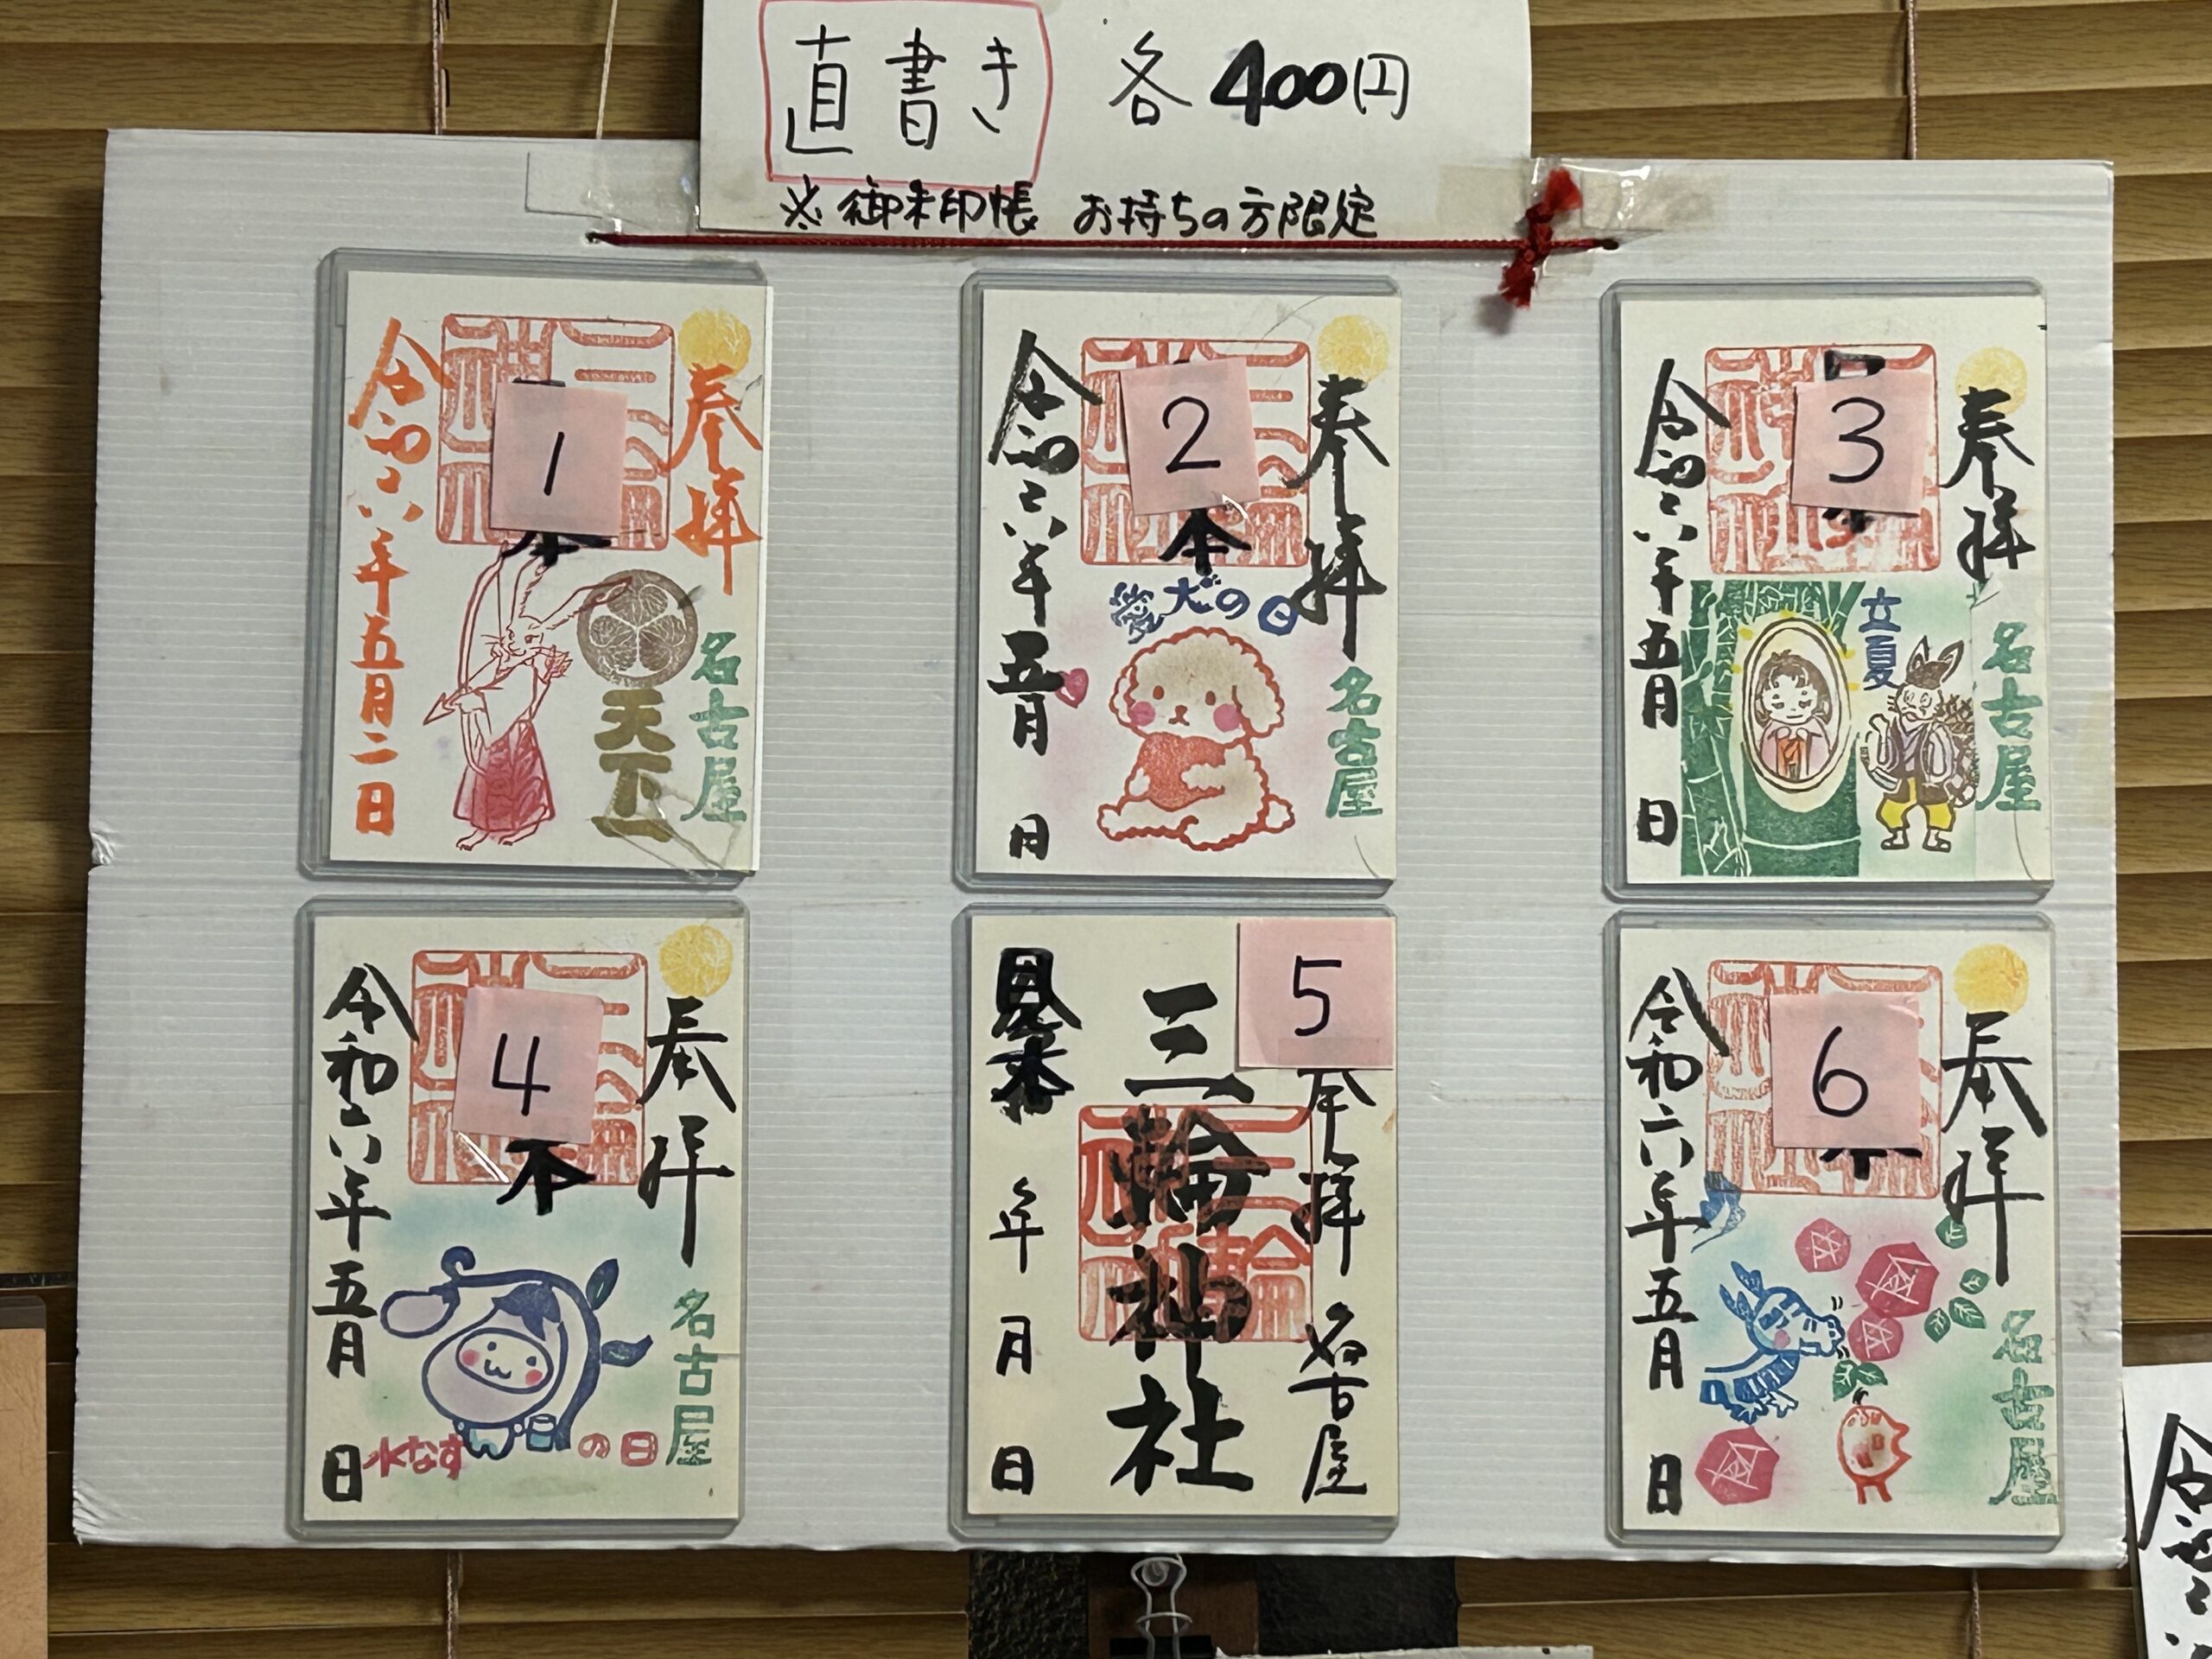 直書き 各400円
※御朱印帳 お持ちの方限定
1
奉拝
名古屋
天下一
令和六年五月二日
2
奉拝
名古屋
本
愛犬の日
令和六年五月 日
3
奉拝
名古屋
立夏
令和六年五月 日
4
奉拝
名古屋
水なすの日
令和六年五月 日
5
奉拝 名古屋
三輪神社
見本
年 月 日
6
奉拝
名古屋
令和六年五月 日